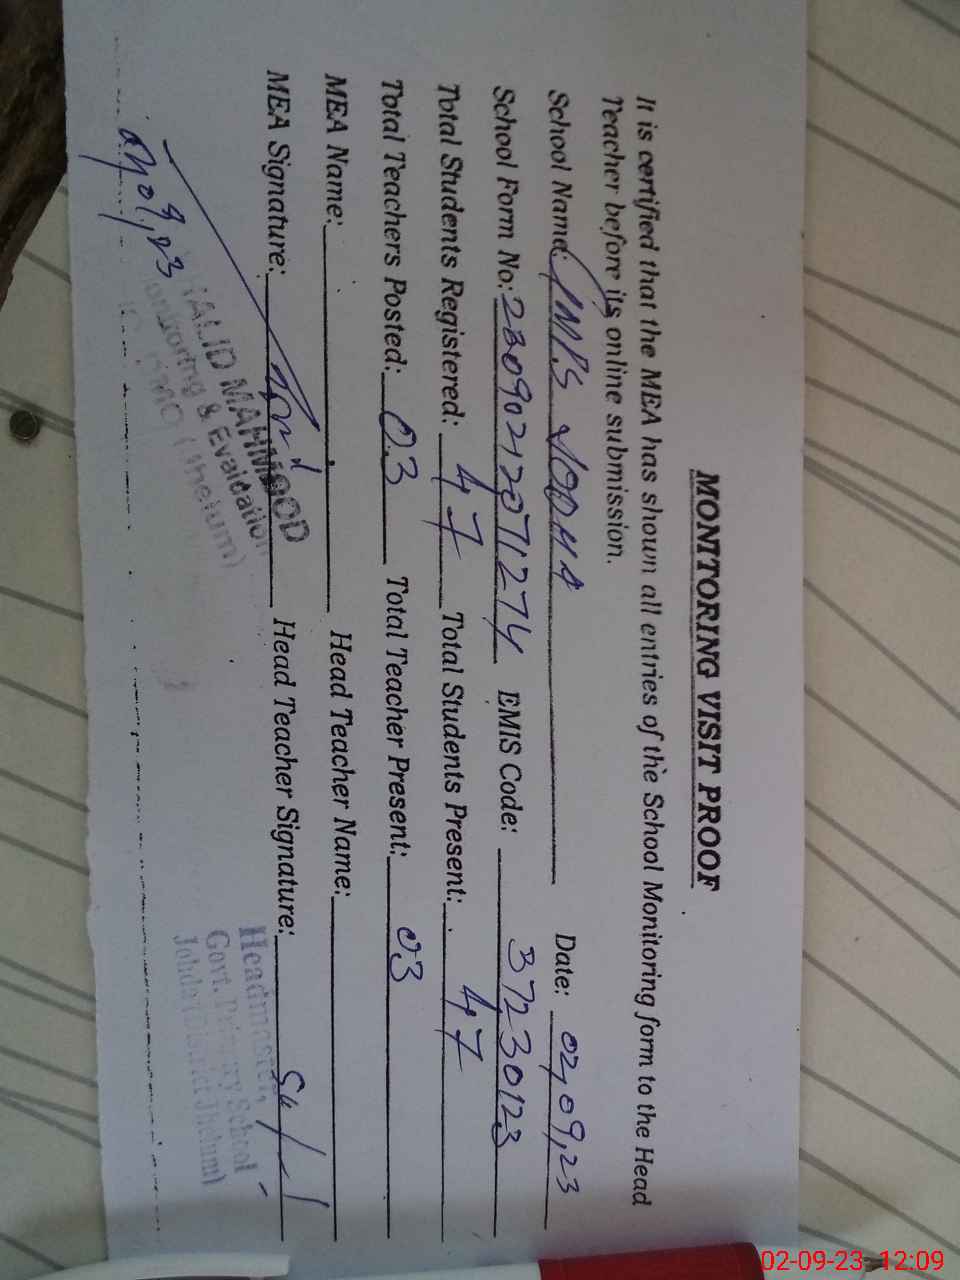 MONITORING VISIT PROOF
It is certified that the MEA has shown all entries of the School Monitoring form to the Head
Teacher before its online submission.
School Name: GMPS JODHA Date: 02,09,23
School Form No: 23090212071274 EMIS Code: 37230123
Total Students Registered: 47 Total Students Present: 47
Total Teachers Posted: 03 Total Teacher Present: 03
MEA Name: Head Teacher Name:
MEA Signature: Head Teacher Signature:
KHALID MAHMOOD
Monitoring & Evaluation
(Jhelum)
Headmaster,
Govt. Primary School
Johda (District Jhelum)
02-09-23 12:09